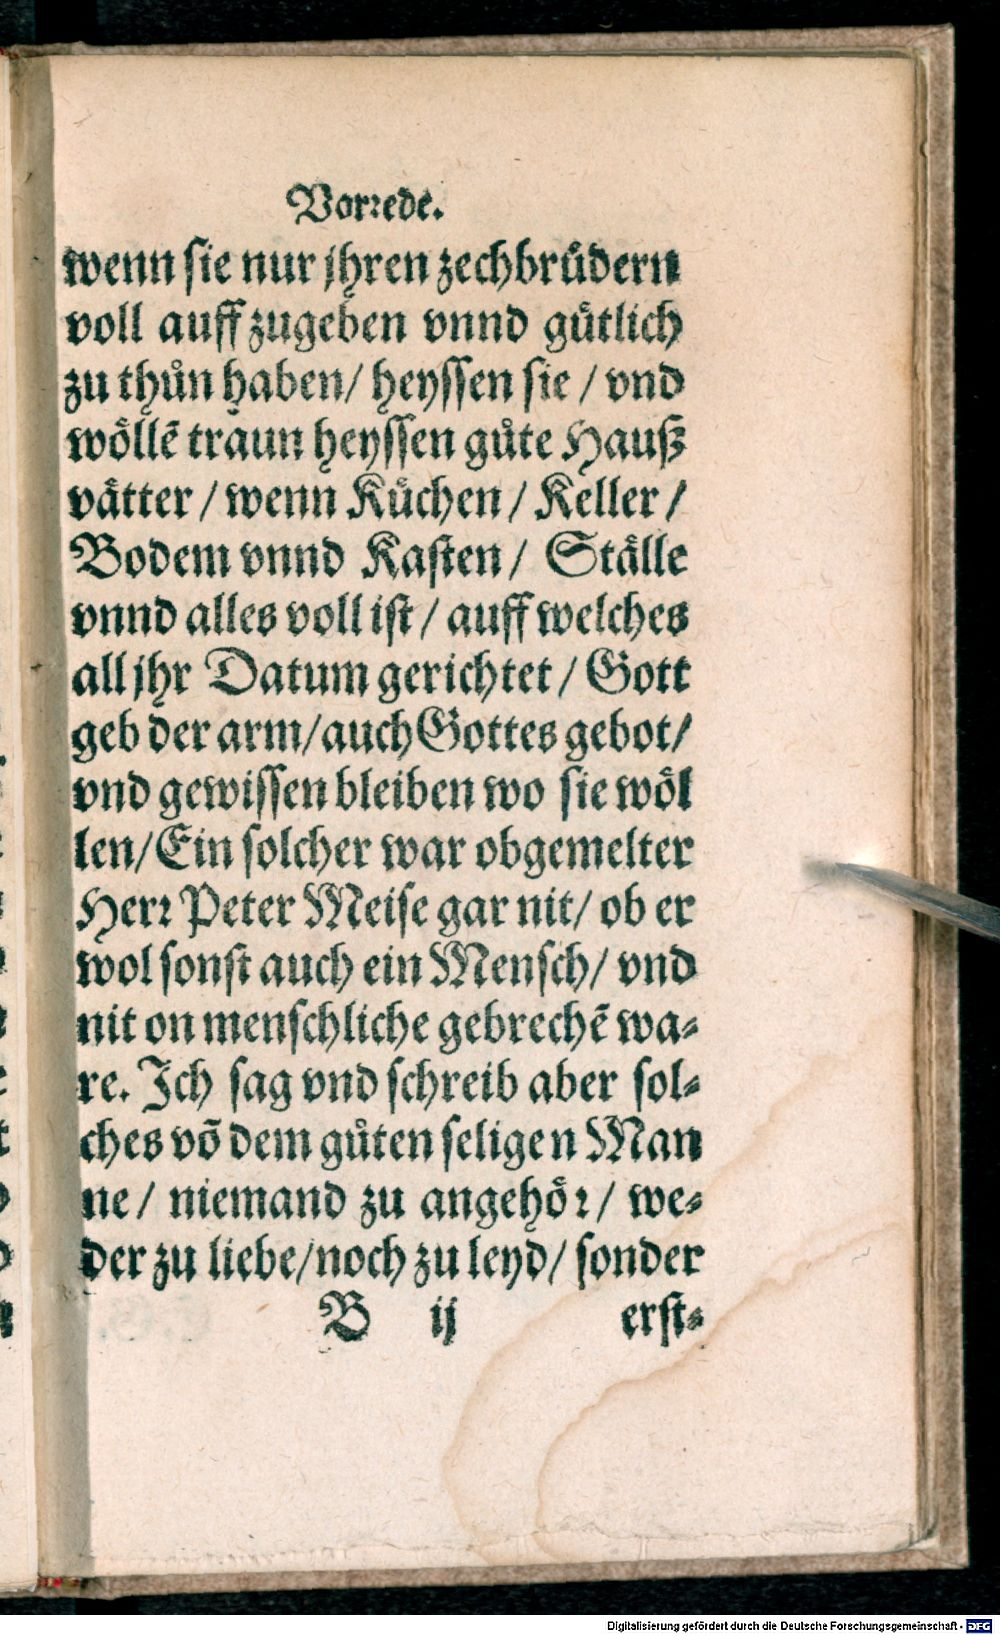 Vorꝛede.
wenn ſie nur jhren zechbruͤdern
voll auff zugeben vnnd guͤtlich
zu thuͦn haben/ heyſſen ſie / vnd
woͤllē traun heyſſen guͦte Hauß
vaͤtter / wenn Kuͤchen / Keller /
Bodem vnnd Kaſten / Staͤlle
vnnd alles voll iſt / auff welches
all jhr Datum gerichtet / Gott
geb der arm/auch Gottes gebot/
vnd gewiſſen bleiben wo ſie woͤl
len/Ein ſolcher war obgemelter
Herꝛ Peter Meiſe gar nit/ ob er
wol ſonſt auch ein Menſch/ vnd
nit on menſchliche gebrechē wa⸗
re. Ich ſag vnd ſchreib aber ſol⸗
ches vō dem guͦten ſeligen Man
ne / niemand zu angehoͤꝛ / we⸗
der zu liebe/noch zu leyd/ ſonder
B ij erſt⸗
Digitalisierung gefördert durch die Deutsche Forschungsgemeinschaft - DFG